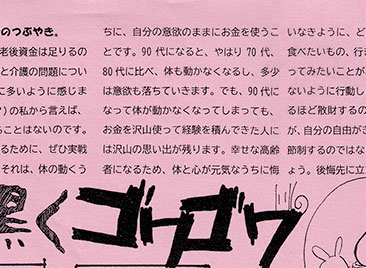 のつぶやき。
老後資金は足りるの
と介護の問題につい
に多いように感じま
?)の私から言えば、
ることはないのです。
るために、ぜひ実戦
それは、体の動くう
ちに、自分の意欲のままにお金を使うこ
とです。90 代になると、やはり 70 代、
80 代に比べ、体も動かなくなるし、多少
は意欲も落ちていきます。でも、90 代に
なって体が動かなくなってしまっても、
お金を沢山使って経験を積んできた人に
は沢山の思い出が残ります。幸せな高齢
者になるため、体と心が元気なうちに悔
いなきように、ど
食べたいもの、行き
ってみたいことが、
ないように行動し
るほど散財するの
が、自分の自由がき
節制するのではな
ょう。後悔先に立
黒く ゴワゴワ